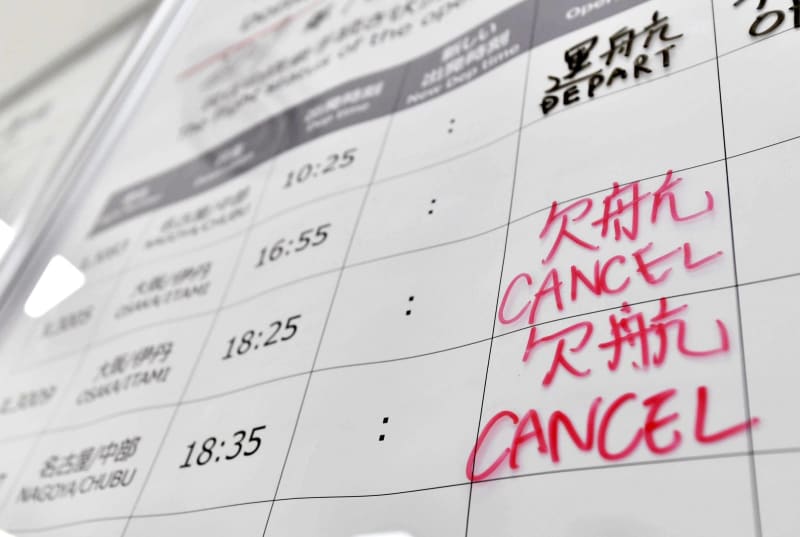 The flight status of the open
出発時刻
Dep time
新しい
出発時刻
New Dep time
運航
DEPART
名古屋/中部
NAGOYA/CHUBU
10:25
:
大阪/伊丹
OSAKA/ITAMI
16:55
:
欠航
CANCEL
大阪/伊丹
OSAKA/ITAMI
18:25
:
欠航
CANCEL
名古屋/中部
NAGOYA/CHUBU
18:35
: